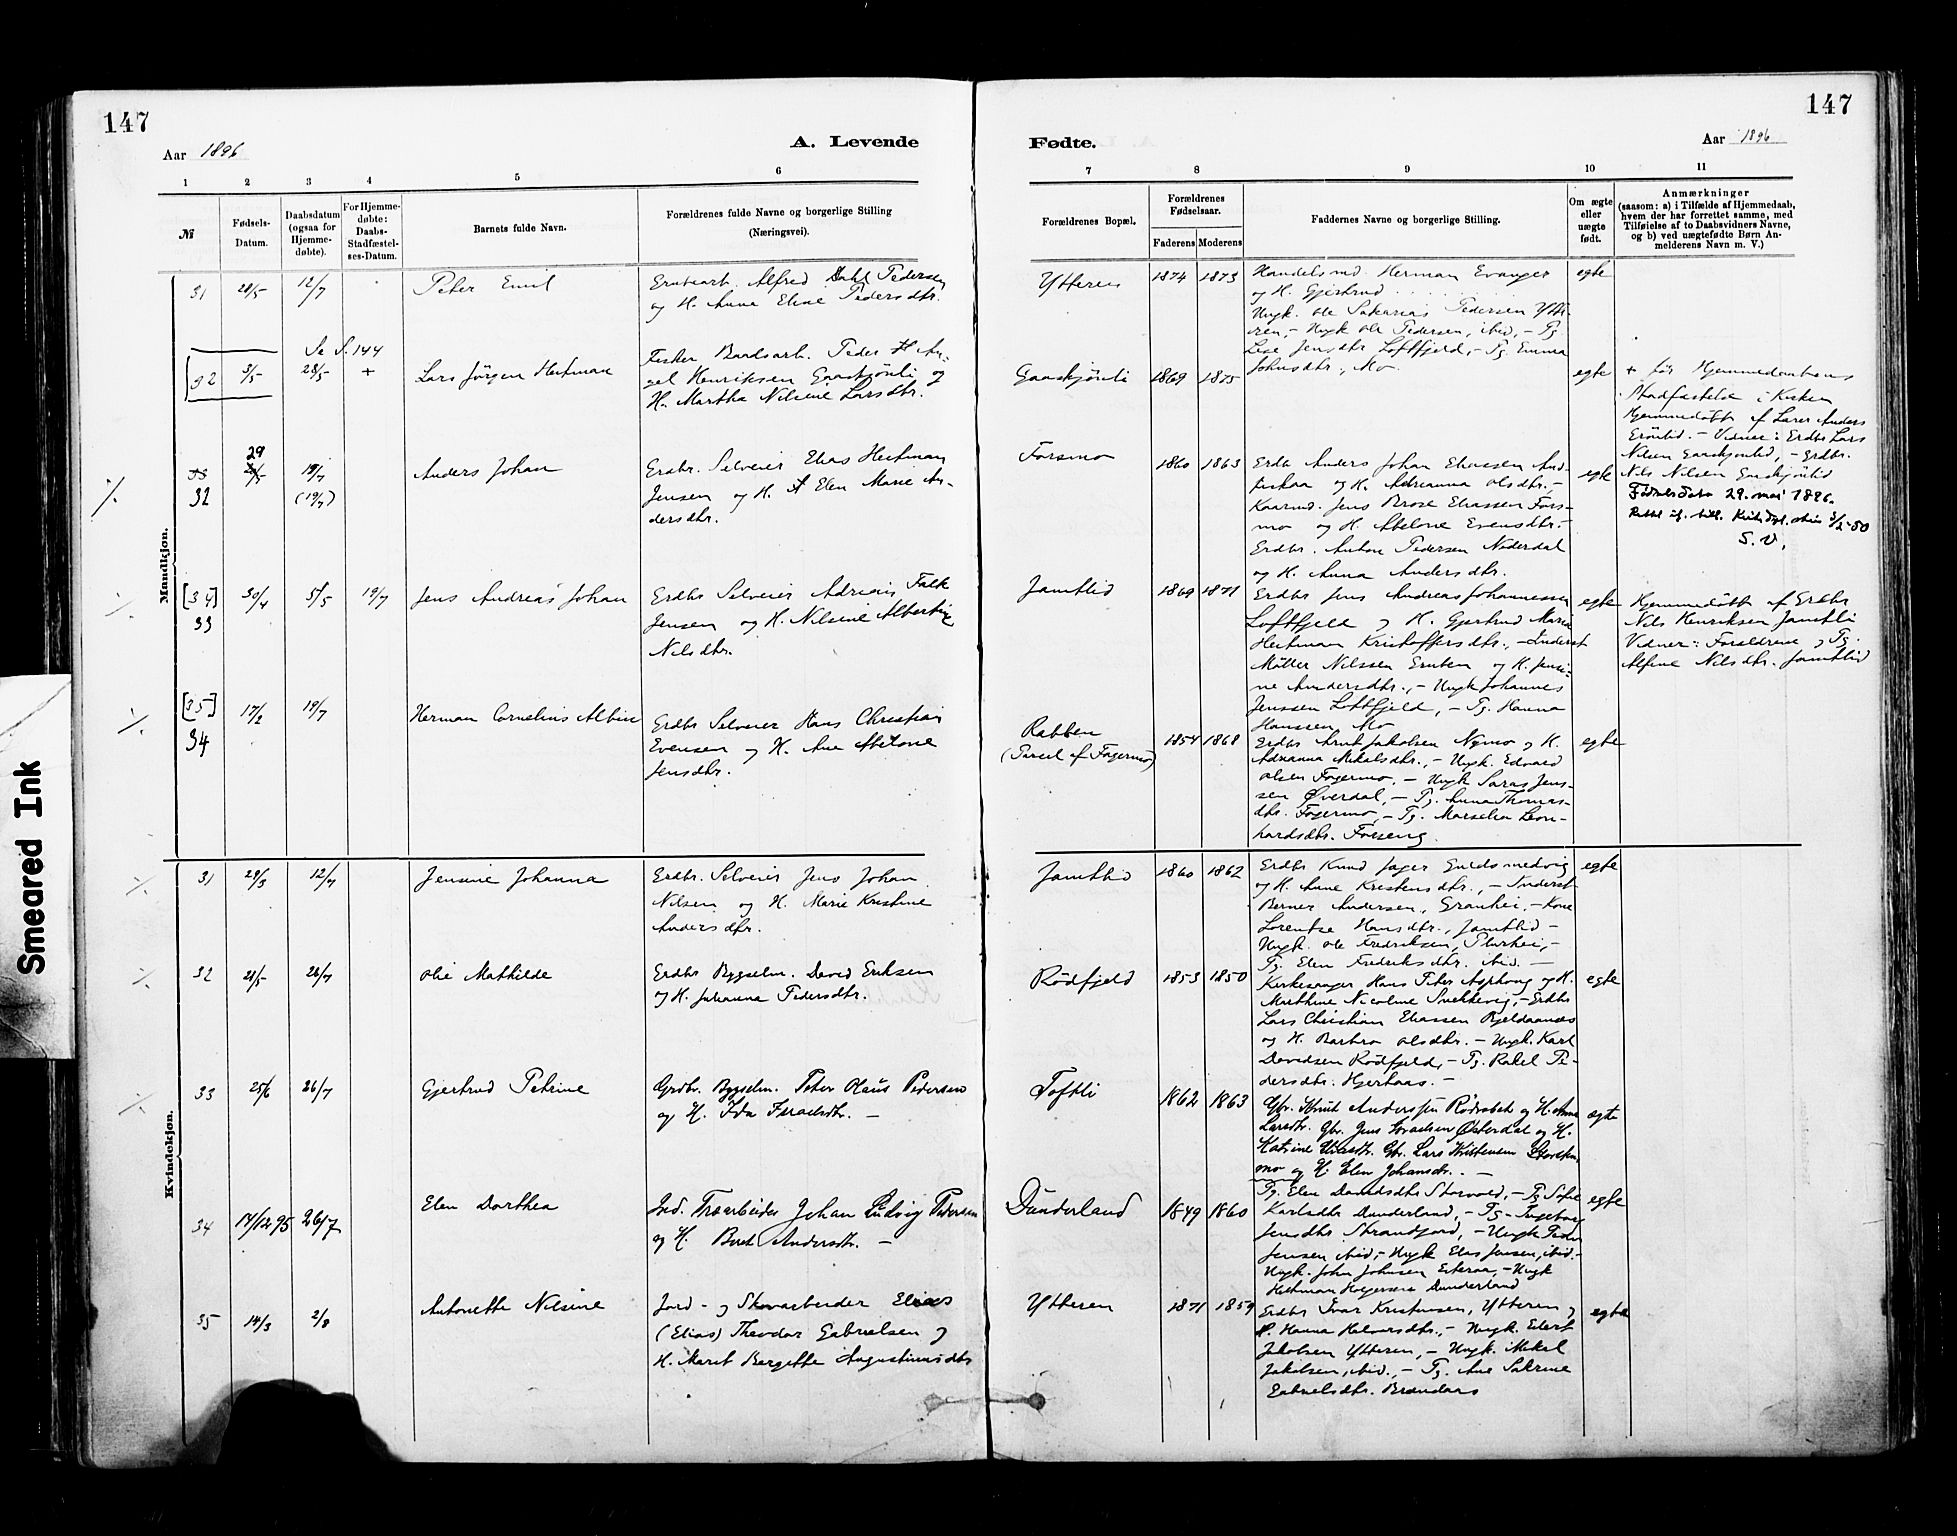 147
147
Aar 1896
A. Levende
Fødte.
Aar 1896
1 2 3 4 5 6
7 8 9 10 11
№
Fødsels-
Datum.
Daabsdatum
(ogsaa for
Hjemme-
døbte).
For Hjemme-
døbte:
Daabs-
Stadfæstel-
ses-Datum.
Barnets fulde Navn.
Forældrenes fulde Navne og borgerlige Stilling
(Næringsvei).
Forældrenes Bopæl.
Forældrenes
Fødselsaar.
Faderens Moderens
Faddernes Navne og borgerlige Stilling.
Om ægte
eller
uægte
født.
Anmærkninger
(saasom: a) i Tilfælde af Hjemmedaab,
hvem der har forrettet samme, med
Tilføielse af to Daabsvidners Navne,
og b) ved uægtefødte Børn An-
melderens Navn m. V.)
Mandkjøn.
31 28/5 12/7 Peter Emil
Grubearb. Alfred Dahl Pedersen
og H. Anna Eline Pedersdtr.
Ytteren 1874 1873
Handelsmd. Herman Evanger
og H. Gjertrud
Ungk. Ole Sakarias Pedersen Ytte-
ren, - Ungk Ole Pedersen, ibid, - Pg
Lise Jensdtr Loftfjeld, - Pg. Emma
Johnsdtr., Mo.
egte
Se S. 144
32 3/5 28/5 + Lars Jørgen Heitman
Fisker Baadsarb. Peder
Henriksen Gaaskjønli og
H. Martha Nilsine Larsdtr.
Gaaskjønli 1869 1875 egte
+ før Hjemmedaabens
Stadfæstelse i Kirken
Hjemmedøbt af Lærer Anders
Vidner: Erdbr Lars
Nilsen Gaaskjønlid, - Erdbr.
Nils Nilsen Gaaskjønlid
29
32 19/7
(19/7)
Anders Johan
Erdbr. Selveier Elias Heitman
Jensen og H. Elen Marie An-
dersdtr.
Forsmo 1860 1863
Erdb Anders Johan Eliassen And-
fiskaa og H. Adrianna Olsdtr, -
Kaarmd. Jens Brose Eliassen Fors-
mo og H. Abelone Evensdtr. -
Erdbr. Anton Pedersen Nederdal
og H. Anna Andersdtr.
egte
Fødselsdato 29. mai 1896.
S. V.
[34]
33
30/4 5/5 19/7 Jens Andreas Johan
Erdbr Selveier Adrian Falk
Jensen og H. Nilsine Albertine
Nilsdtr.
Jamtlid 1869 1871
Erdbr Jens Andreas Johannessen
Loftfjeld og H. Gjertrud Marie
Heitman Kristoffersdtr., - Inderst
Møller Nilssen Gruben og H. Jensi-
ne Andersdtr., - Ungk Johannes
Jenssen Loftfjeld, - Pg. Hanna
Hanssen, Mo
egte
Hjemmedøbt af Erdbr
Nils Henriksen Jamtli
Vidner: Forældrene og Pg.
Alfine Nilsdtr. Jamtlid
[35]
34
17/2 19/7 Herman Cornelius Albin
Erdbr Selveier Hans Christian
Evensen og H. Ane Abelone
Jensdtr.
Rabben
(Parcel af Fagermo)
1854 1868
Erdbr Arnt Jakobsen Nymo og H.
Adrianna Mikalsdtr., - Ungk. Edvard
Olsen Fagermo, - Ungk Saras Jens-
sen Øverdal, - Pg. Anna Thomas-
dtr. Fagermo, - Pg. Marselia Leon-
hardsdtr. Forseng.
egte
Kvindekjøn.
31 29/3 12/7 Jensine Johanna
Erdbr. Selveier Jens Johan
Nilsen og H. Marie Kristine
Andersdtr.
Jamtlid 1860 1862
Erdbr Knud Jager Guldsmedvig
og H. Anne Kristensdtr., - Inderst
Berner Andersen, Granhei, - Kone
Lorentse Hansdtr., Jamtlid -
Ungk. Ole Fredriksen, Plurhei, -
Pg. Elen Fredriksdtr. ibid. -
egte
32 21/5 26/7 Olie Mathilde
Erdbr Bygselm. David Eriksen
og H. Johanna Pedersdtr.
Rødfjeld 1853 1850
Kirkesanger Hans Peter Asphaug og H.
Marthine Nicoline Snekkevig, - Erdbr
Lars Christian Eliassen Bjeldaanæs
og H. Barbro Olsdtr. - Ungk. Karl
Davidsen Rødfjeld, - Pg. Rakel Pe-
dersdtr. Hjerhaas. -
egte
33 25/6 26/7 Gjertrud Petrine
Grdbr. Bygselm. Peter Olaus Pedersen
og H. Ida Israelsdtr. -
Toftli 1862 1863
Gbr. Knut Anderssen Rødvabek og H. Anna
Larsdtr. Gbr. Jens Israelsen Østerdal og H.
Katrine Gbr. Lars Kristensen Storfors-
mo og H. Elen Johansdtr. -
ægte
34 14/12 95 26/7 Elen Dorthea
Ind. Træarbeider Johan Ludvig Pedersen
og H. Beret Andersdtr. -
Dunderland 1849 1860
Pg. Elen Davidsdtr Storvold, - Pg Sofie
Karlsdtr Dunderland, - Pg Ingeborg
Jensdtr Strandjord, - Ungk Peder
Jensen ibid, - Ungk Elias Jensen, ibid. -
Ungk. John Johnsen Eiteraa, - Ungk
Heitman Dunderland
egte
35 14/3 2/8 Antonette Nilsine
Jord- og Skovarbeider Elias
(Elias) Theodor Gabrielsen og
H. Marit Bergette Augustinusdtr
Ytteren 1871 1859
Erdbr Ivar Kristensen, Ytteren og
H. Hanna Halvorsdtr., - Ungk. Edert
Jakobsen Ytteren, - Ungk. Mikal
Jakobsen, ibid., - Pg. Ane Sakrine
Gabrielsdtr. Brændaas
egte
Smeared Ink